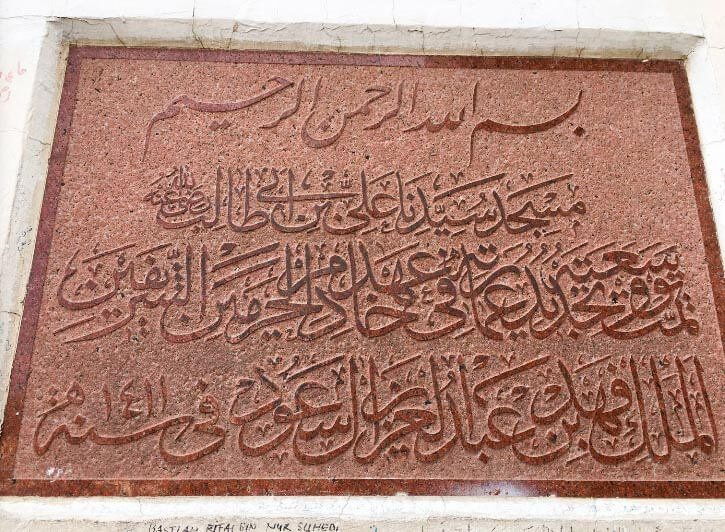 بسم الله الرحمن الرحيم
مسجد سيدنا علي بن ابي طالب رضي الله عنه
تمت توسعته وتجديد عمارته في عهد خادم الحرمين الشريفين
الملك فهد بن عبد العزيز آل سعود في سنة ١٤١١ هـ
BASTIAN RIFAI BIN NUR SUHEDI